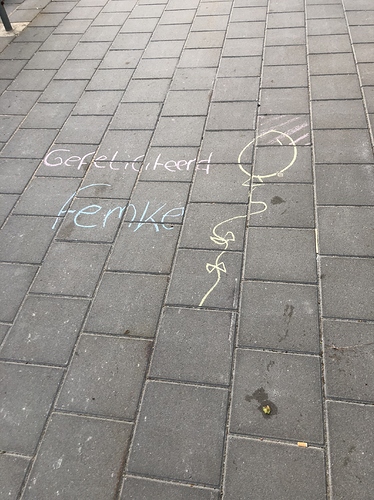 Gefeliciteerd
femke